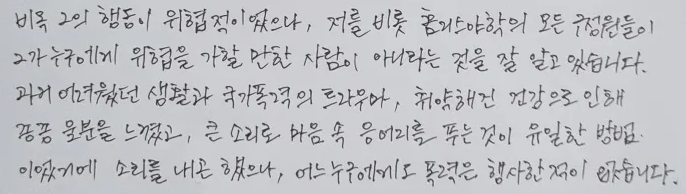 비록 그의 행동이 위협적이었으나, 저를 비롯 홈리스야학의 모든 구성원들이
그가 누구에게 위협을 가할 만한 사람이 아니라는 것을 잘 알고 있습니다.
과거 어려웠던 생활과 국가폭력의 트라우마, 취약해진 건강으로 인해
종종 울분을 느꼈고, 큰 소리로 마음 속 응어리를 푸는 것이 유일한 방법
이었기에 소리를 내곤 했으나, 어느 누구에게도 폭력은 행사한 적이 없습니다.